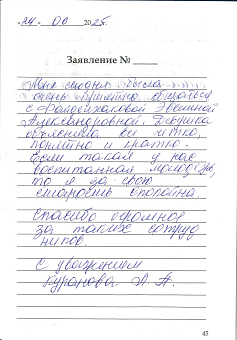 24. 06 2025.
Заявление № ____
Мне сегодня было
очень приятно общаться
с Эвелиной
Александровной. Девушка
объяснила все четко,
понятно и кратко.
Если такая у нас
воспитанная молодежь,
то я за свою
старость спокойна.
Спасибо огромное
за таких сотруд
ников.
С уважением
Куранова Л. А.
45